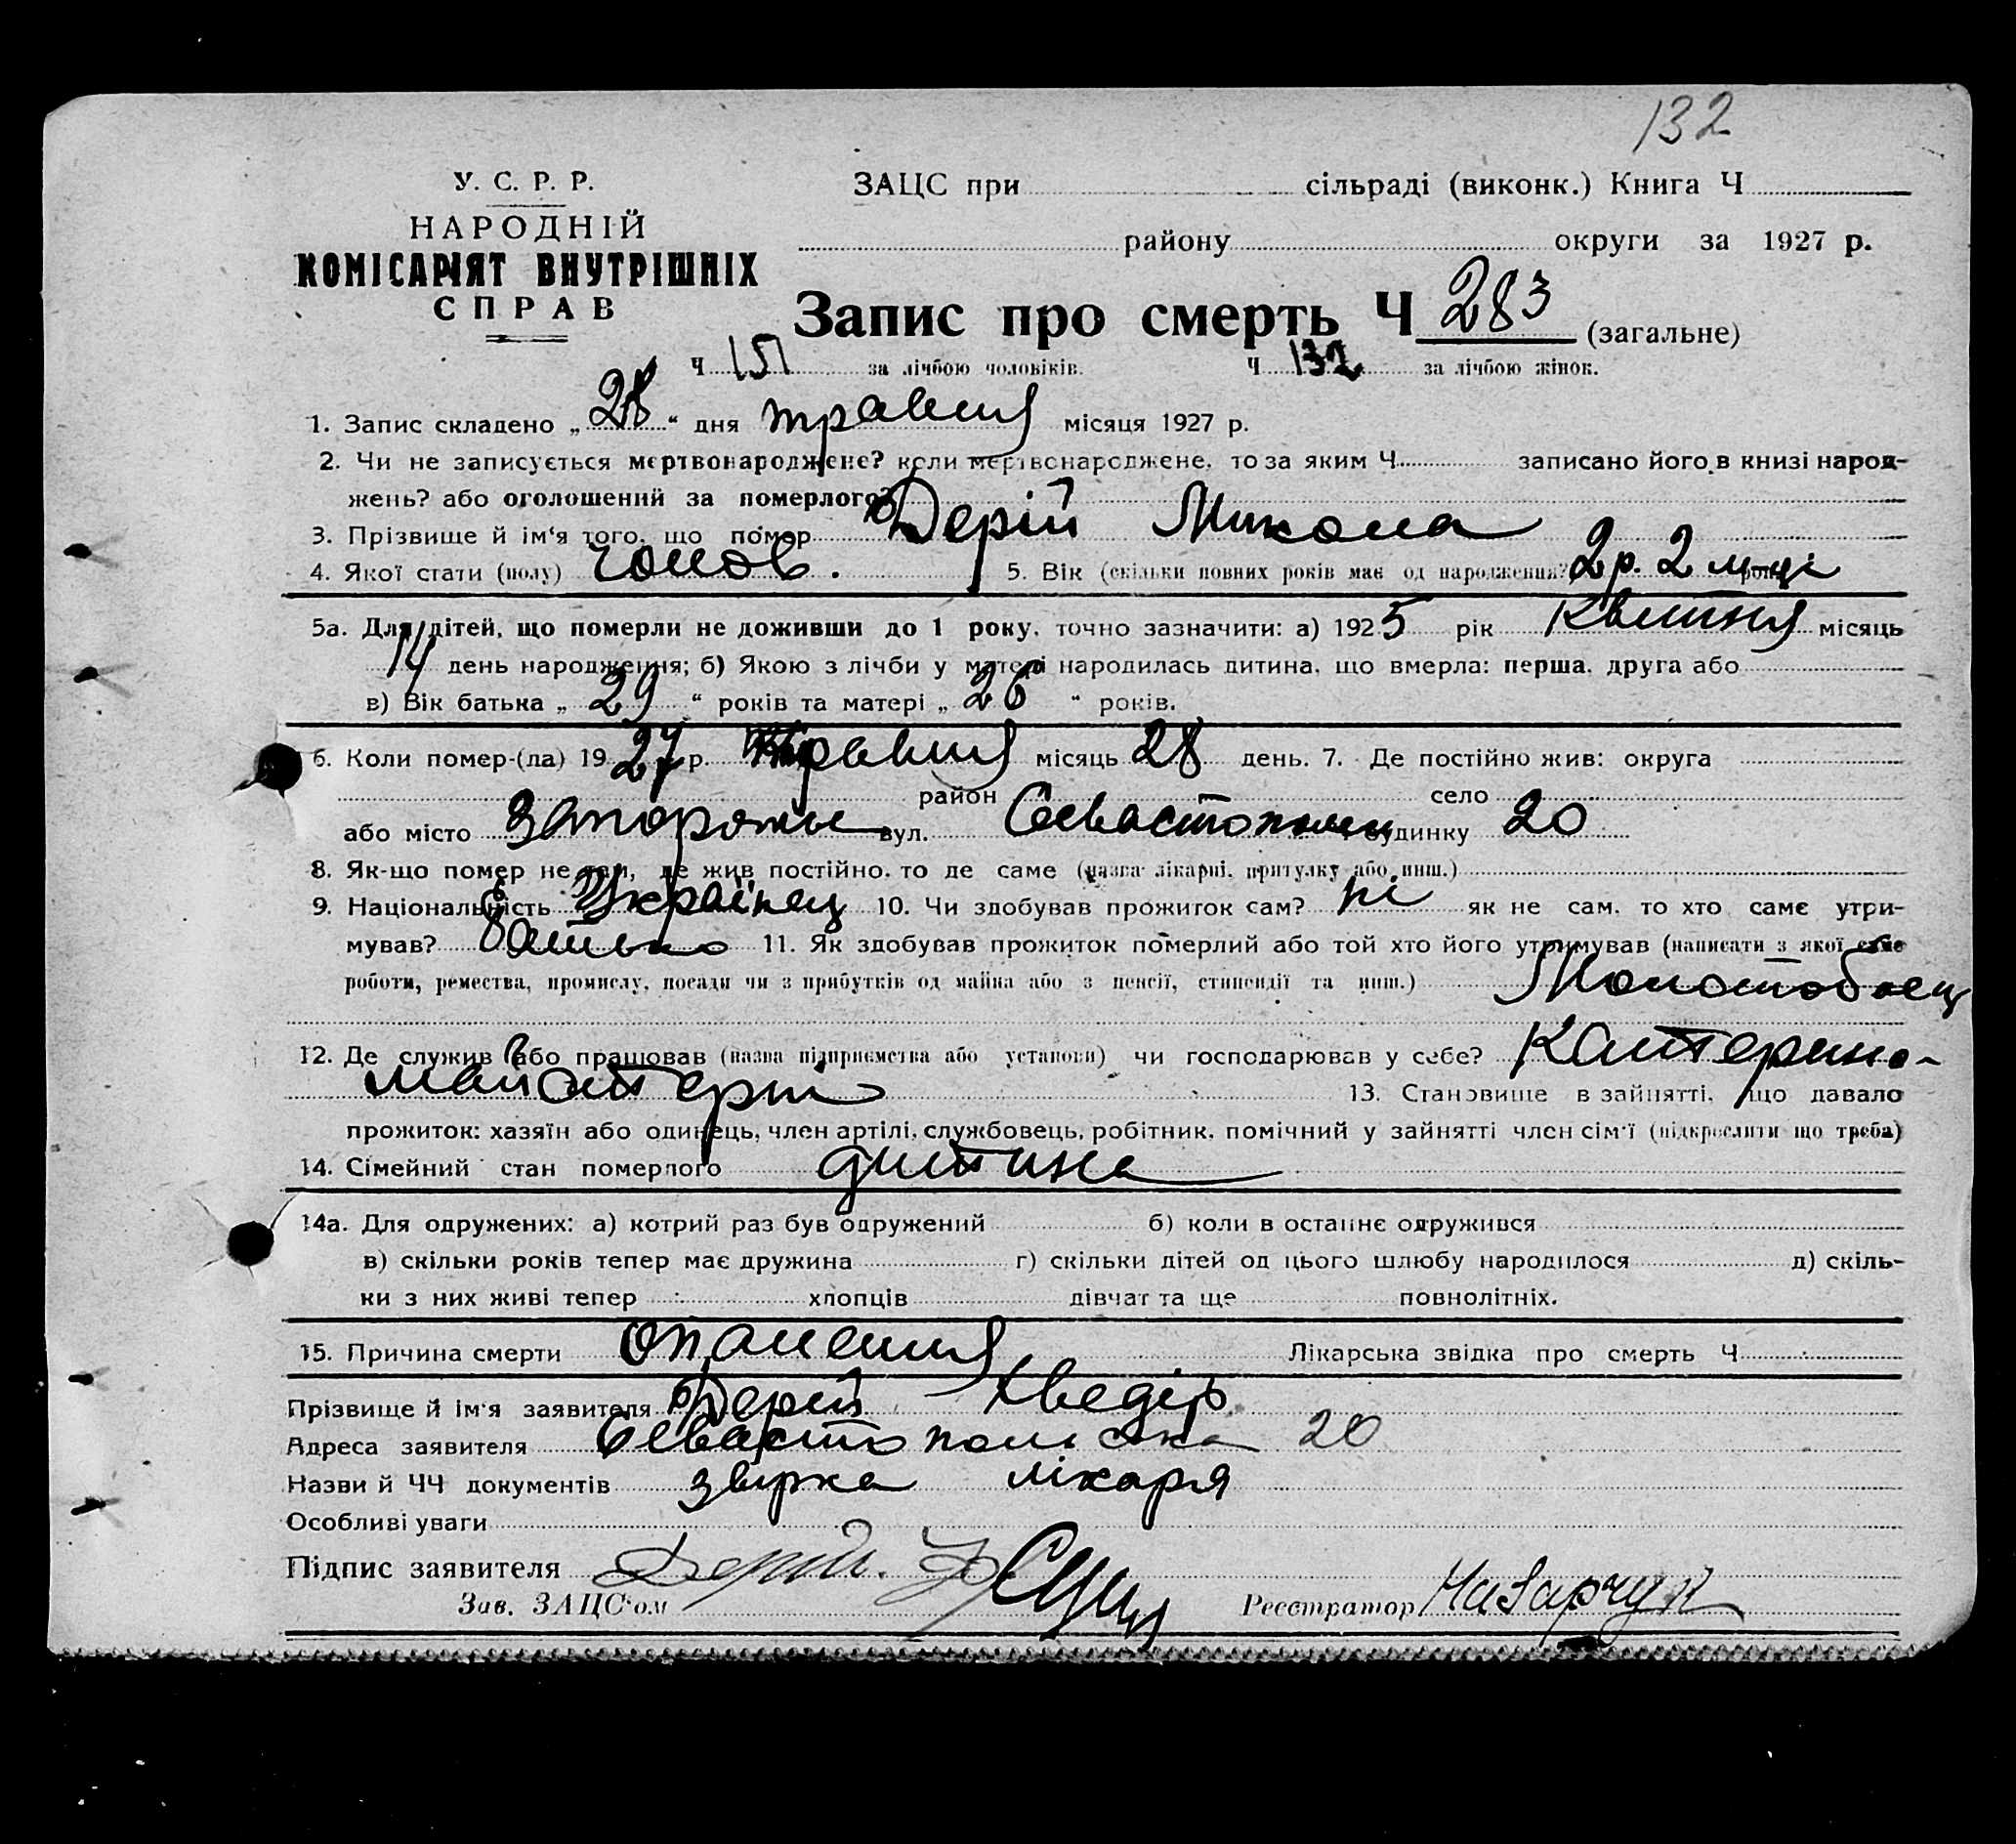 132
У. С. Р. Р.
НАРОДНІЙ
КОМІСАРІЯТ ВНУТРІШНІХ
СПРАВ
ЗАЦС при сільраді (виконк.) Книга Ч
району округи за 1927 р.
Запис про смерть Ч 283 (загальне)
Ч 151 за лічбою чоловіків. Ч 132 за лічбою жінок.
1. Запис складено „28“ дня травня місяця 1927 р.
2. Чи не записується мертвонароджене? коли мертвонароджене, то за яким Ч записано його в книзі народ-
жень? або оголошений за померлого?
3. Прізвище й ім‘я того, що помер Дерій Микола
4. Якої стати (полу) чолов. 5. Вік (скільки повних років має од народження? 2 р. 2 м-ці
5а. Для дітей, що померли не доживши до 1 року, точно зазначити: а) 1925 рік Квітня місяць
14 день народження; б) Якою з лічби у матері народилась дитина, що вмерла: перша, друга або
в) Вік батька „ 29 “ років та матері „ 26 “ років.
6. Коли помер-(ла) 1927 р. травня місяць 28 день. 7. Де постійно жив: округа
район село
або місто Запоріжжє вул. Севастопольс будинку 20
8. Як-що помер не там, де жив постійно, то де саме (назва лікарні, притулку або инш.)
9. Національність Українец 10. Чи здобував прожиток сам? ні як не сам, то хто саме утри-
мував? батько 11. Як здобував прожиток померлий або той хто його утримував (написати з якої саме
роботи, ремества, промислу, посади чи з прибутків од майна або з пенсії, стипендії та инш.) Молотобоец
12. Де служив або працював (назва підприємства або установи) чи господарював у себе? Катерино-
майстерні 13. Становище в зайнятті, що давало
прожиток: хазяїн або одинець, член артілі, службовець, робітник, помічний у зайнятті член сім‘ї (підкреслити що треба)
14. Сімейний стан померлого дитина
14а. Для одружених: а) котрий раз був одружений б) коли в останнє одружився
в) скільки років тепер має дружина г) скільки дітей од цього шлюбу народилося д) скіль-
ки з них живі тепер хлопців дівчат та ще повнолітніх.
15. Причина смерти опалення Лікарська звідка про смерть Ч
Прізвище й ім‘я заявителя Дерій Хведір
Адреса заявителя Севастопольска 20
Назви й ЧЧ документів лікаря
Особливі уваги
Підпис заявителя Дерій.
Зав. ЗАЦС‘ом Реєстратор Назарчук